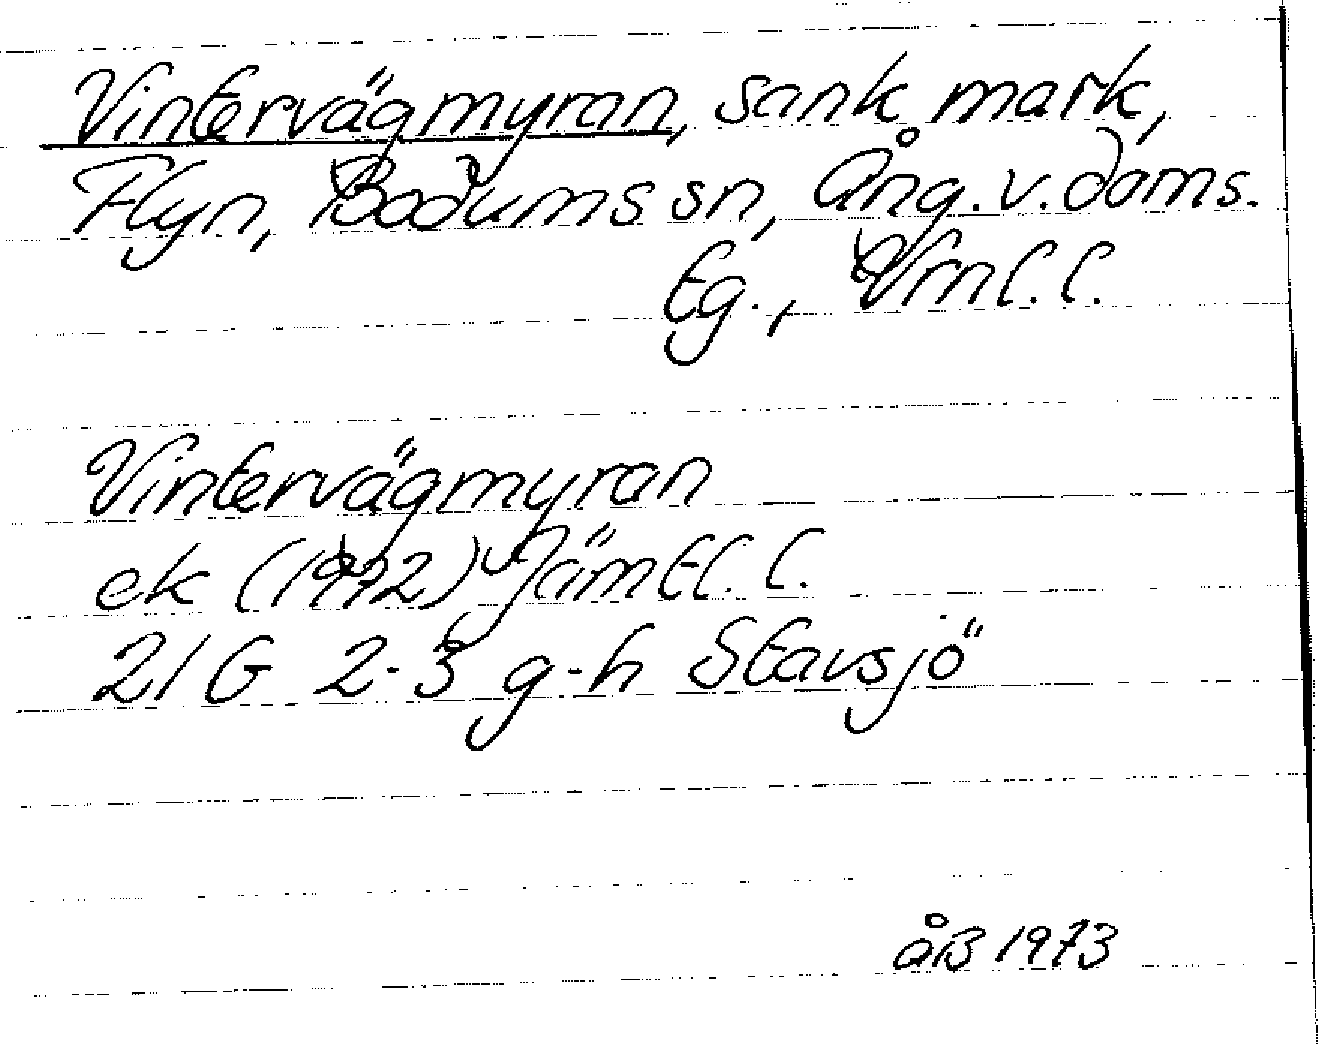 Vintervägmyran, sank mark,
Flyn, Bodums sn, Ång. v. doms.
Eg., Vrnl. l.
Vintervägmyran
ek (1972) Jämtl. l.
21G 2-3 g-h Stavsjö
åB 1973